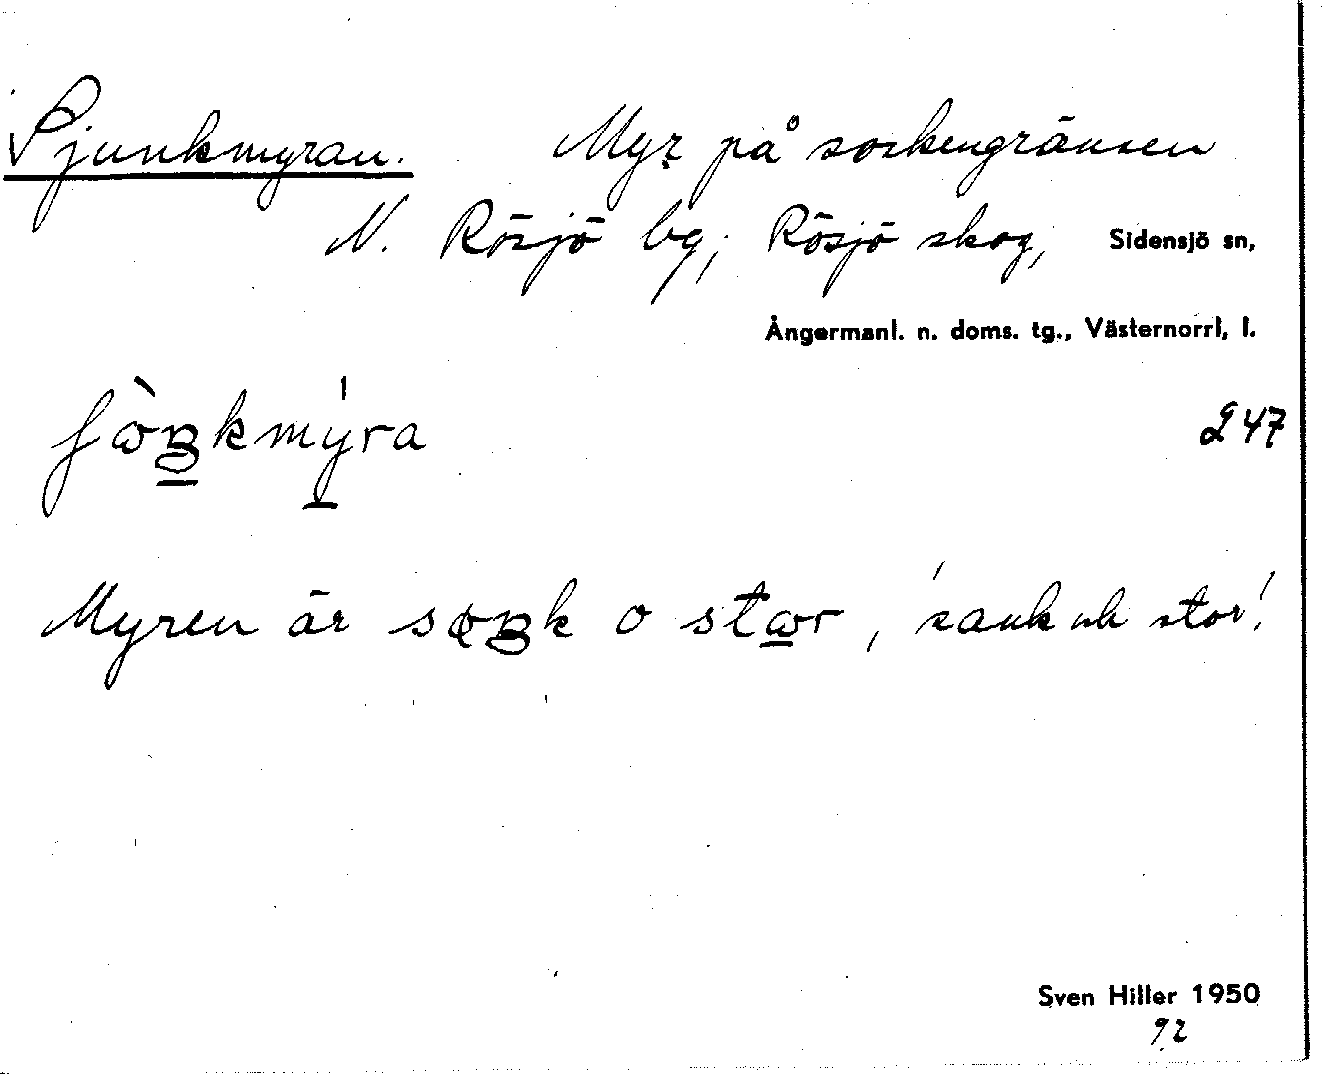 Sjunkmyran. Myr på sockengränsen
N. Rösjö by; Rösjö skog, Sidensjö sn,
Ångermanl. n. doms. tg., Västernorrl, l.
247
Myren är o 'sank och stor'.
Sven Hiller 1950
92